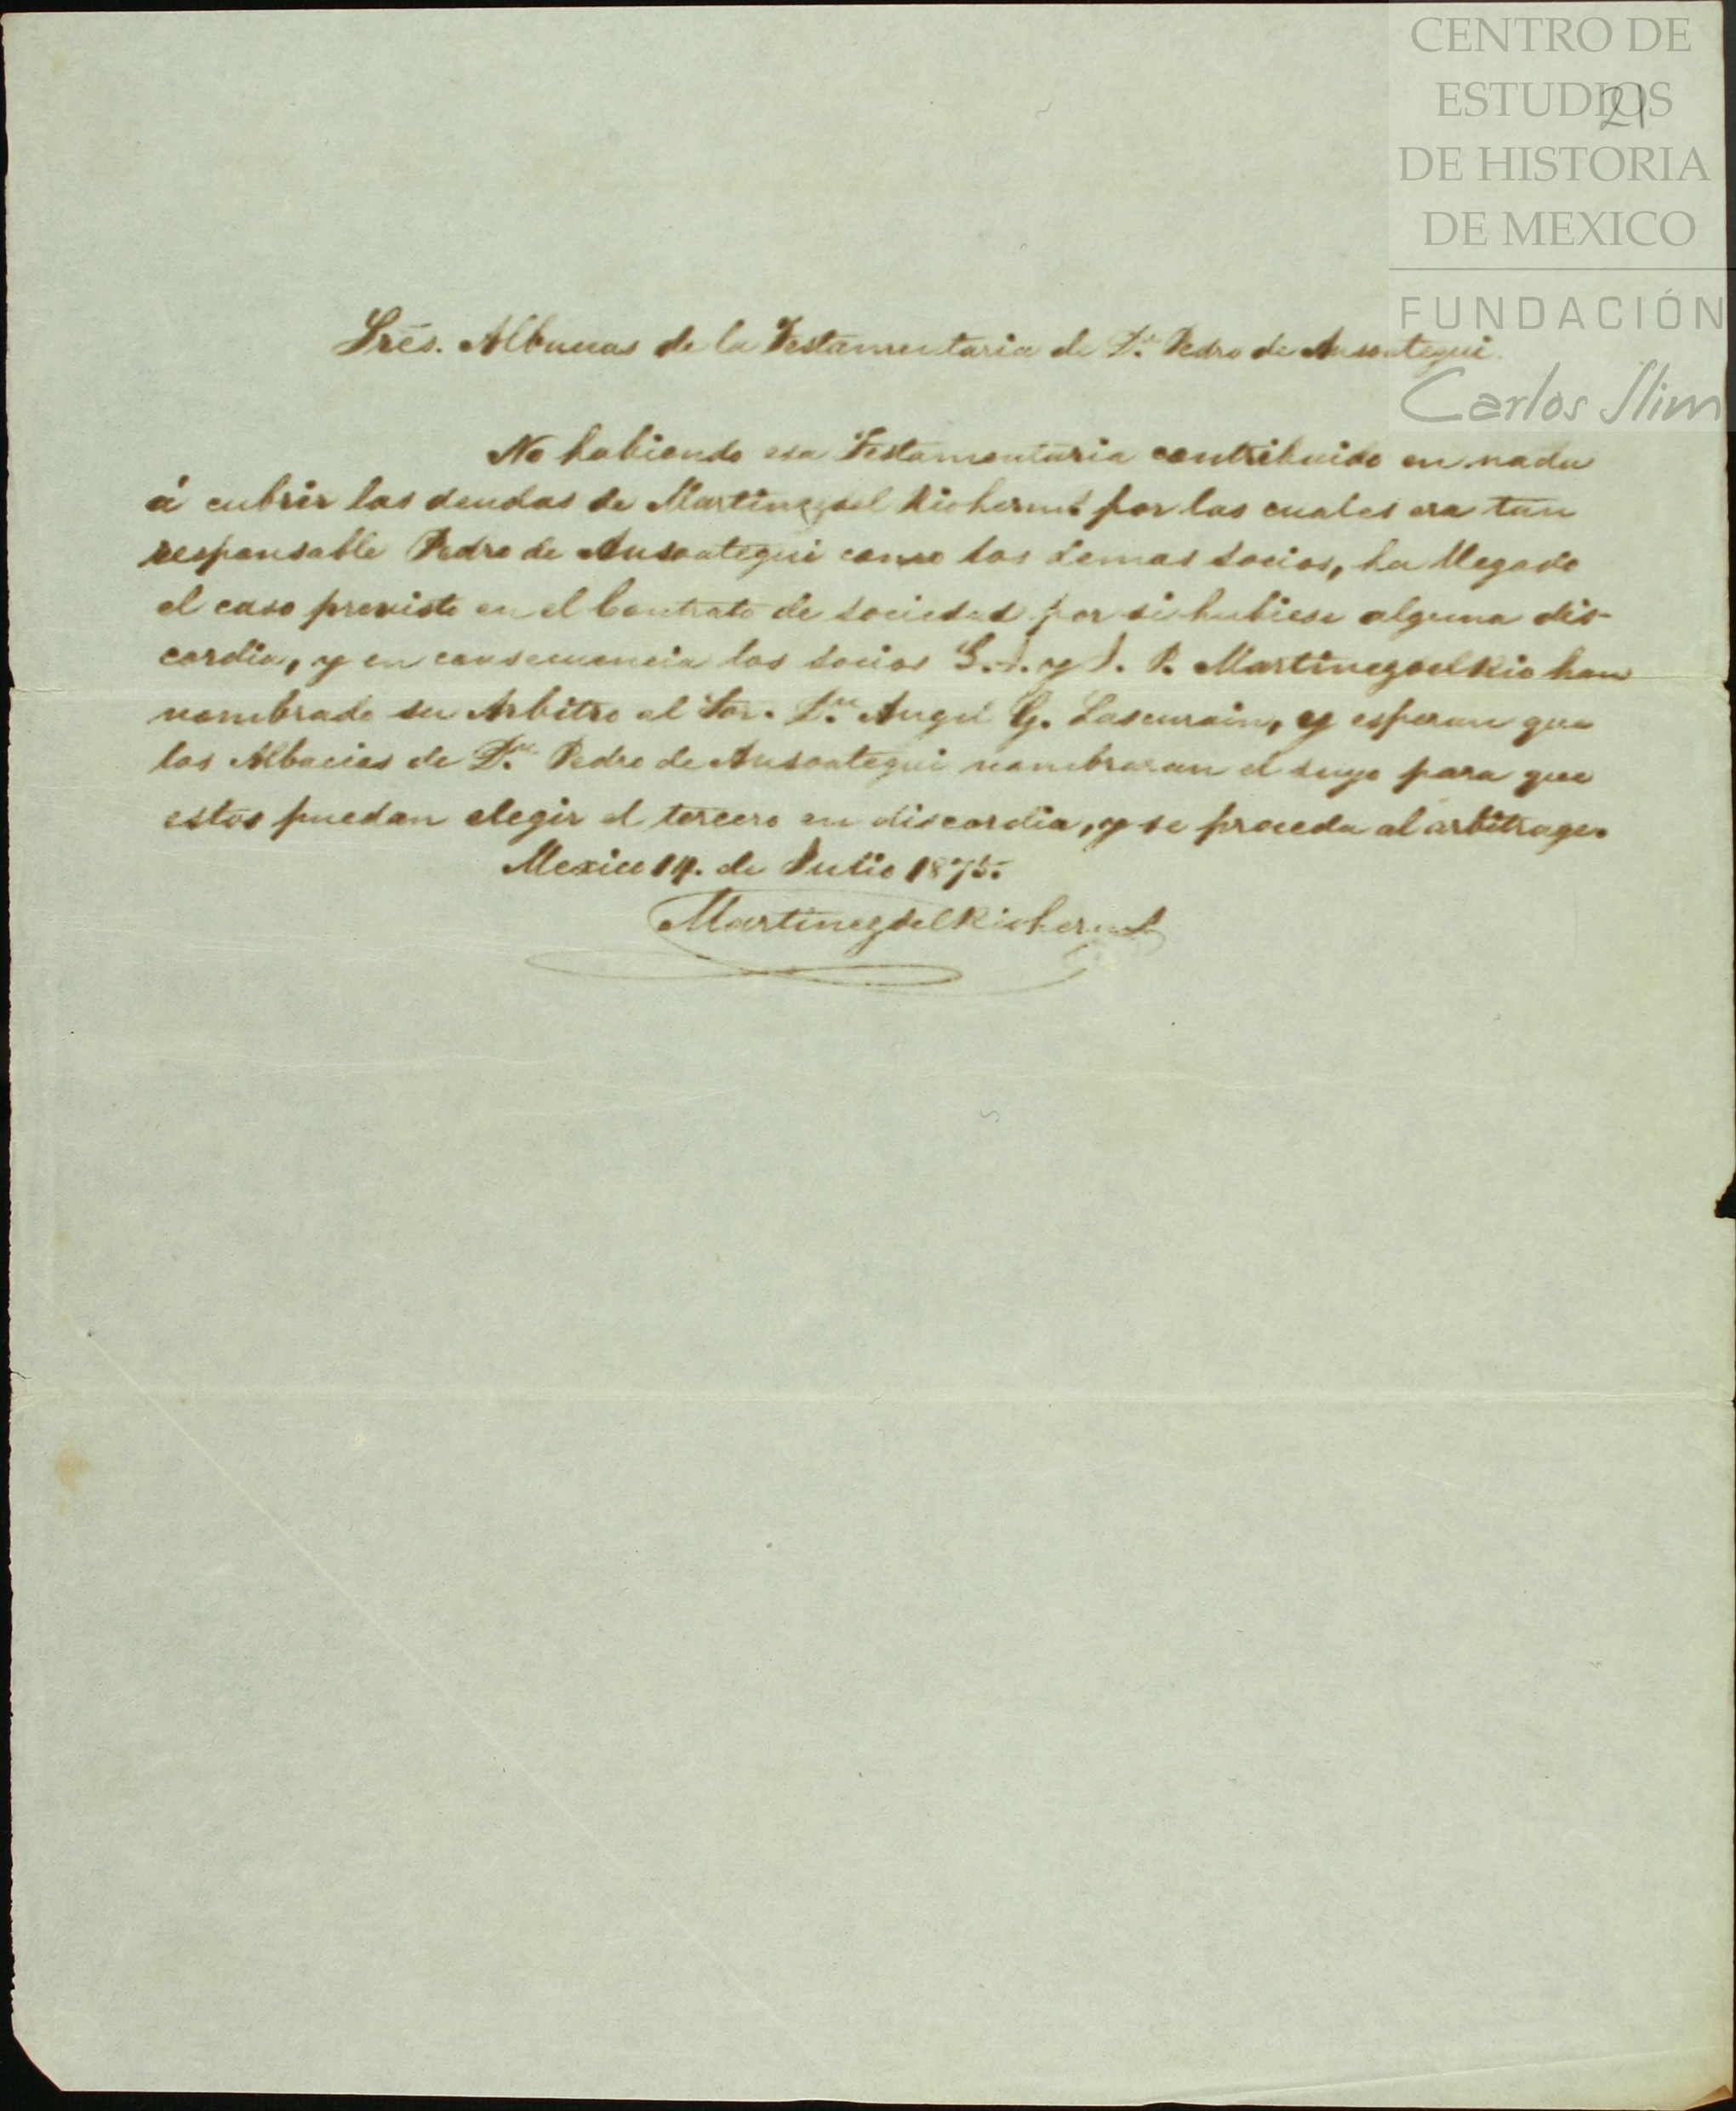 CENTRO DE
ESTUDIOS
DE HISTORIA
DE MEXICO
FUNDACIÓN
Carlos Slim
21
Sres. Albaceas de la Testamentaria de Dn. Pedro de Ansoategui.
No habiendo esa Testamentaria contribuido en nada
á cubrir las deudas de Martinez del Rio herms por las cuales era tan
responsable Pedro de Ansoategui como los demas socios, ha llegado
el caso previsto en el Contrato de sociedad por si hubiese alguna dis-
cordia, y en consecuencia los socios G. J. y J. P. Martinez del Rio han
nombrado su Arbitro al Sor. Dn. Angel G. Lascurain, y esperan que
los Albaceas de Dn. Pedro de Ansoategui nombraran el suyo para que
estos puedan elegir el tercero en discordia, y se proceda al arbitrage.
Mexico 14. de Julio 1875.
Martinez del Rio herms